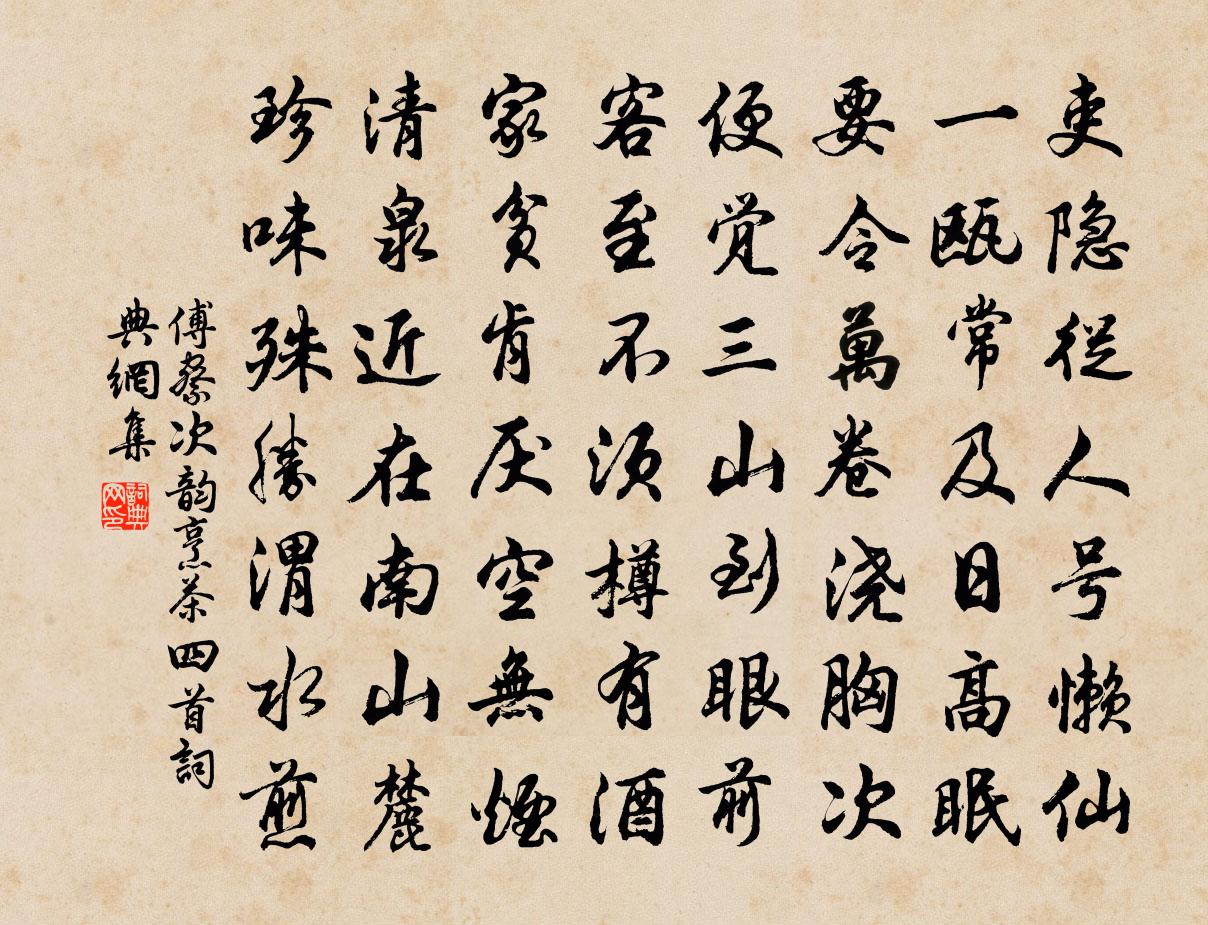 吏隐從人号懒仙
一瓯常及日高眠
要令萬卷浇胸次
便觉三山到眼前
客至不须樽有酒
家貧肯厌空無煙
清泉近在南山麓
珍味殊勝渭水煎
傅察次韵烹茶四首詞
典網集
詞典
网印